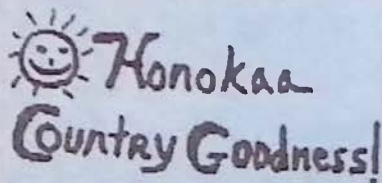 Honokaa
Country Goodness!